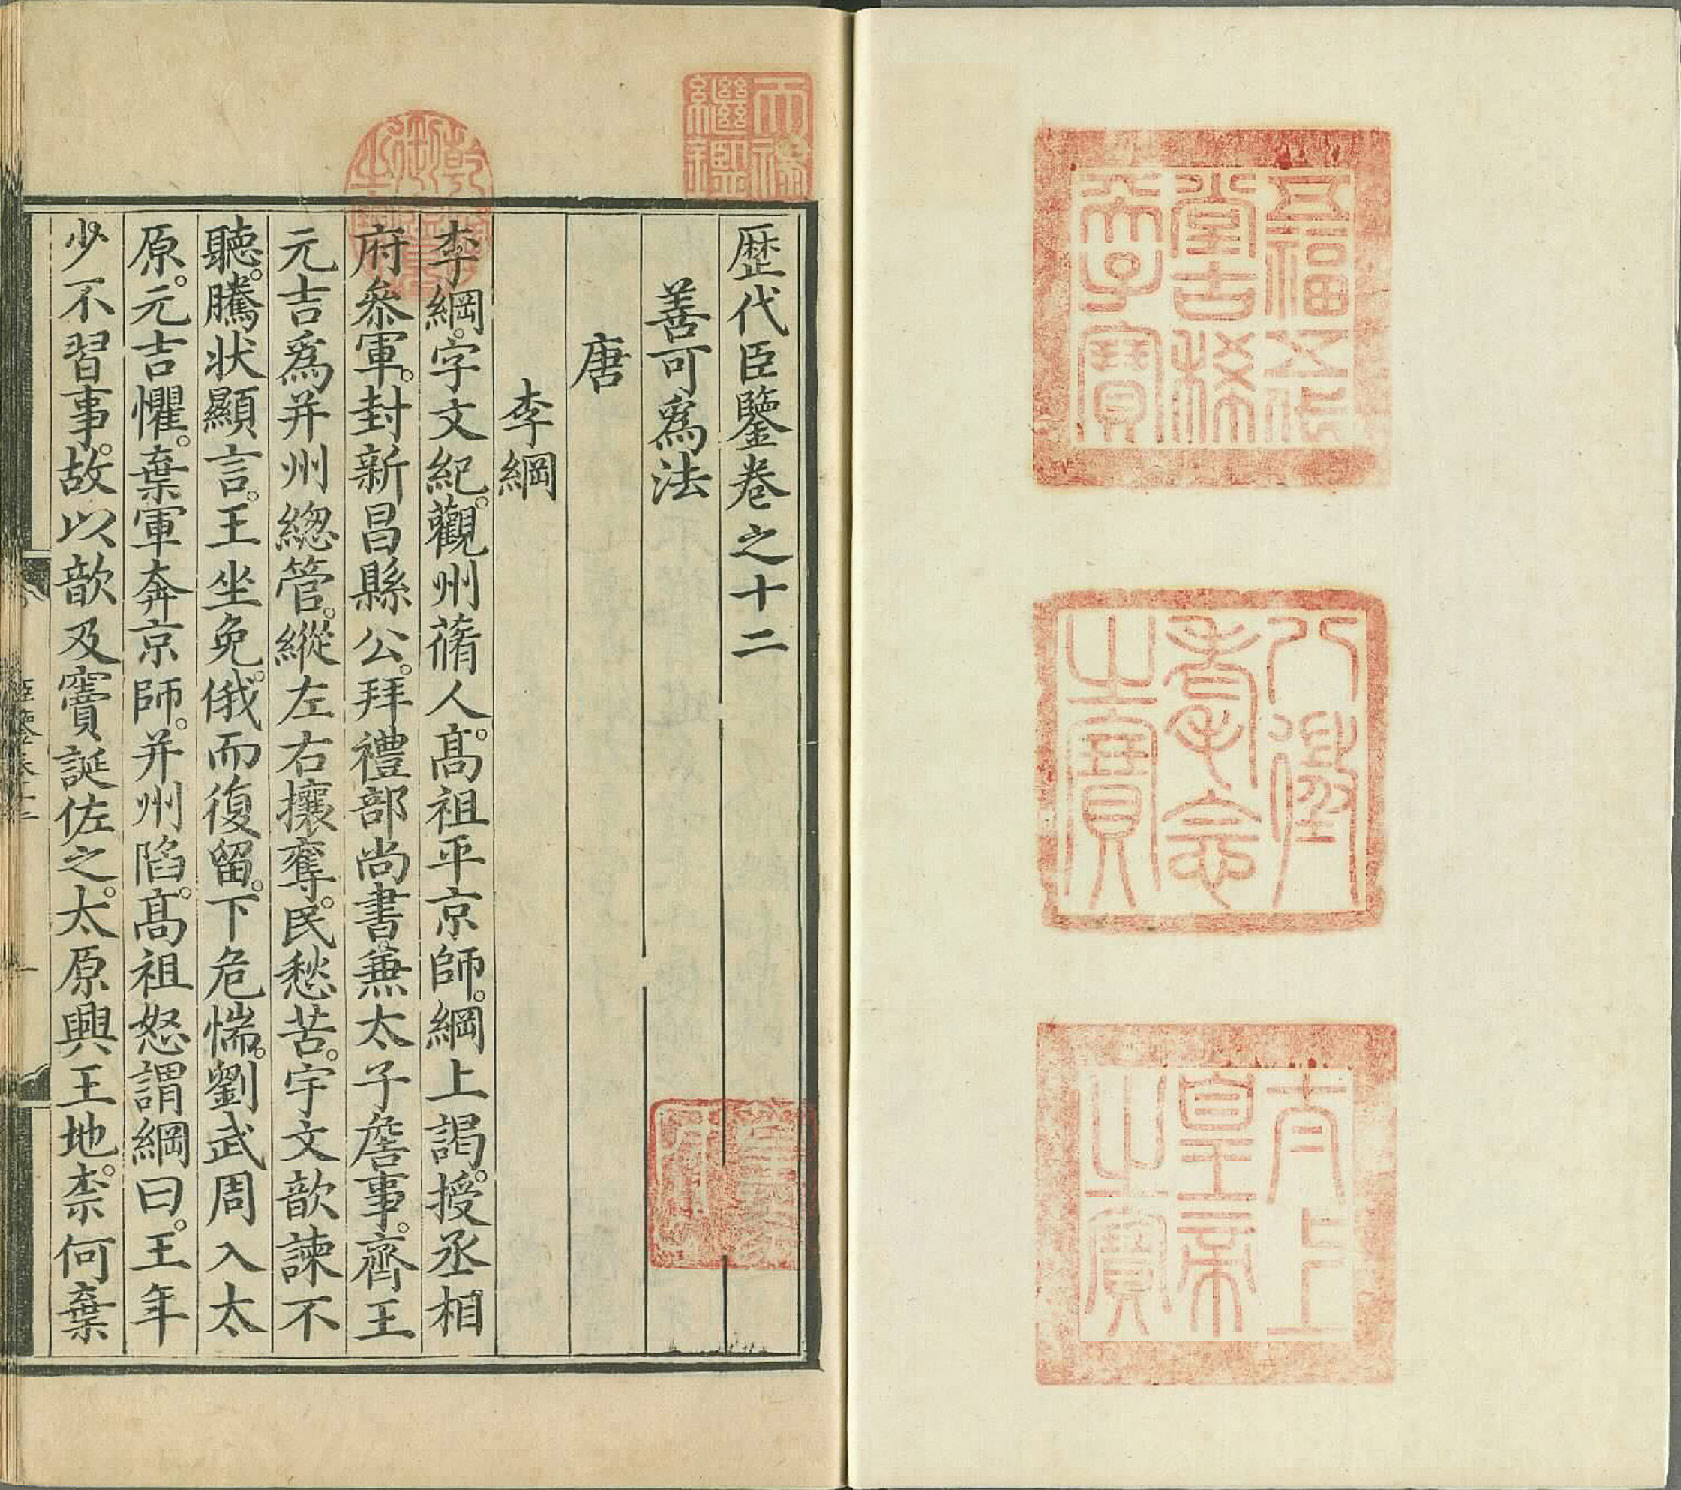 五福五代
堂古稀
天子寶
八徵
耄念
之寶
太上
皇帝
之寶
天祿
繼鑑
乾隆
御覽
之寶
歷代臣鑒卷之十二
善可爲法
唐
李綱
李綱。字文紀。觀州蓨人。髙祖平京師。綱上謁。授丞相
府叅軍。封新昌縣公。拜禮部尚書兼太子詹事。齊王
元吉爲并州緫管。縱左右攘奪。民愁苦。宇文歆諫不
聽。騰狀顯言。王坐免。俄而復留。下危惴。劉武周入太
原。元吉懼。棄軍奔京師。并州陷。髙祖怒謂綱曰。王年
少不習事。故以歆及竇誕佐之。太原興王地。柰何棄